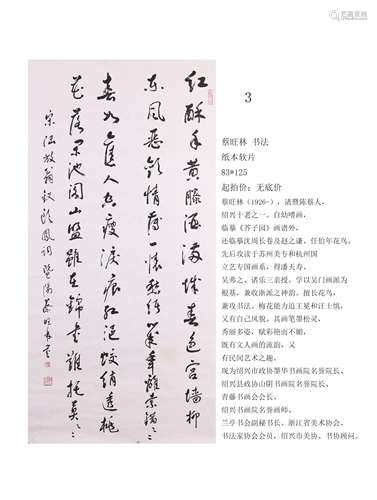 红酥手黄縢酒满城春色宫墙柳
东风恶歡情薄一懷愁绪幾年離索错〻〻
春如舊人空瘦淚痕红浥鲛绡透桃
花落闲池阁山盟雖在錦書難托莫〻〻
宋陆放翁钗頭鳳词 暨陽蔡旺林書
3
蔡旺林 书法
纸本软片
83*125
起拍价：无底价
蔡旺林（1926-），诸暨陈蔡人，
绍兴十老之一。自幼嗜画，
临摹《芥子园》画谱外，
还临摹沈周长卷及赵之谦、任伯年花鸟。
先后攻读于苏州美专和杭州国
立艺专国画系，得潘天寿、
吴弗之，诸乐三亲授，学以吴门画派为
根基，兼收浙派之神韵，擅长花鸟，
兼攻山水，梅花能力追王冕和汪士慎，
又有自己风貌。其画笔墨松灵，
秀丽多姿，赋彩艳而不媚，
既有文人画的流韵，又
有民间艺术之趣。
现为绍兴市政协墨华书画院名誉院长、
绍兴县政协山阴书画院名誉院长、
青藤书画会会长、
绍兴书画院名誉画师、
兰亭书会副秘书长、浙江省美术协会、
书法家协会会员，绍兴市美协、书协顾问。